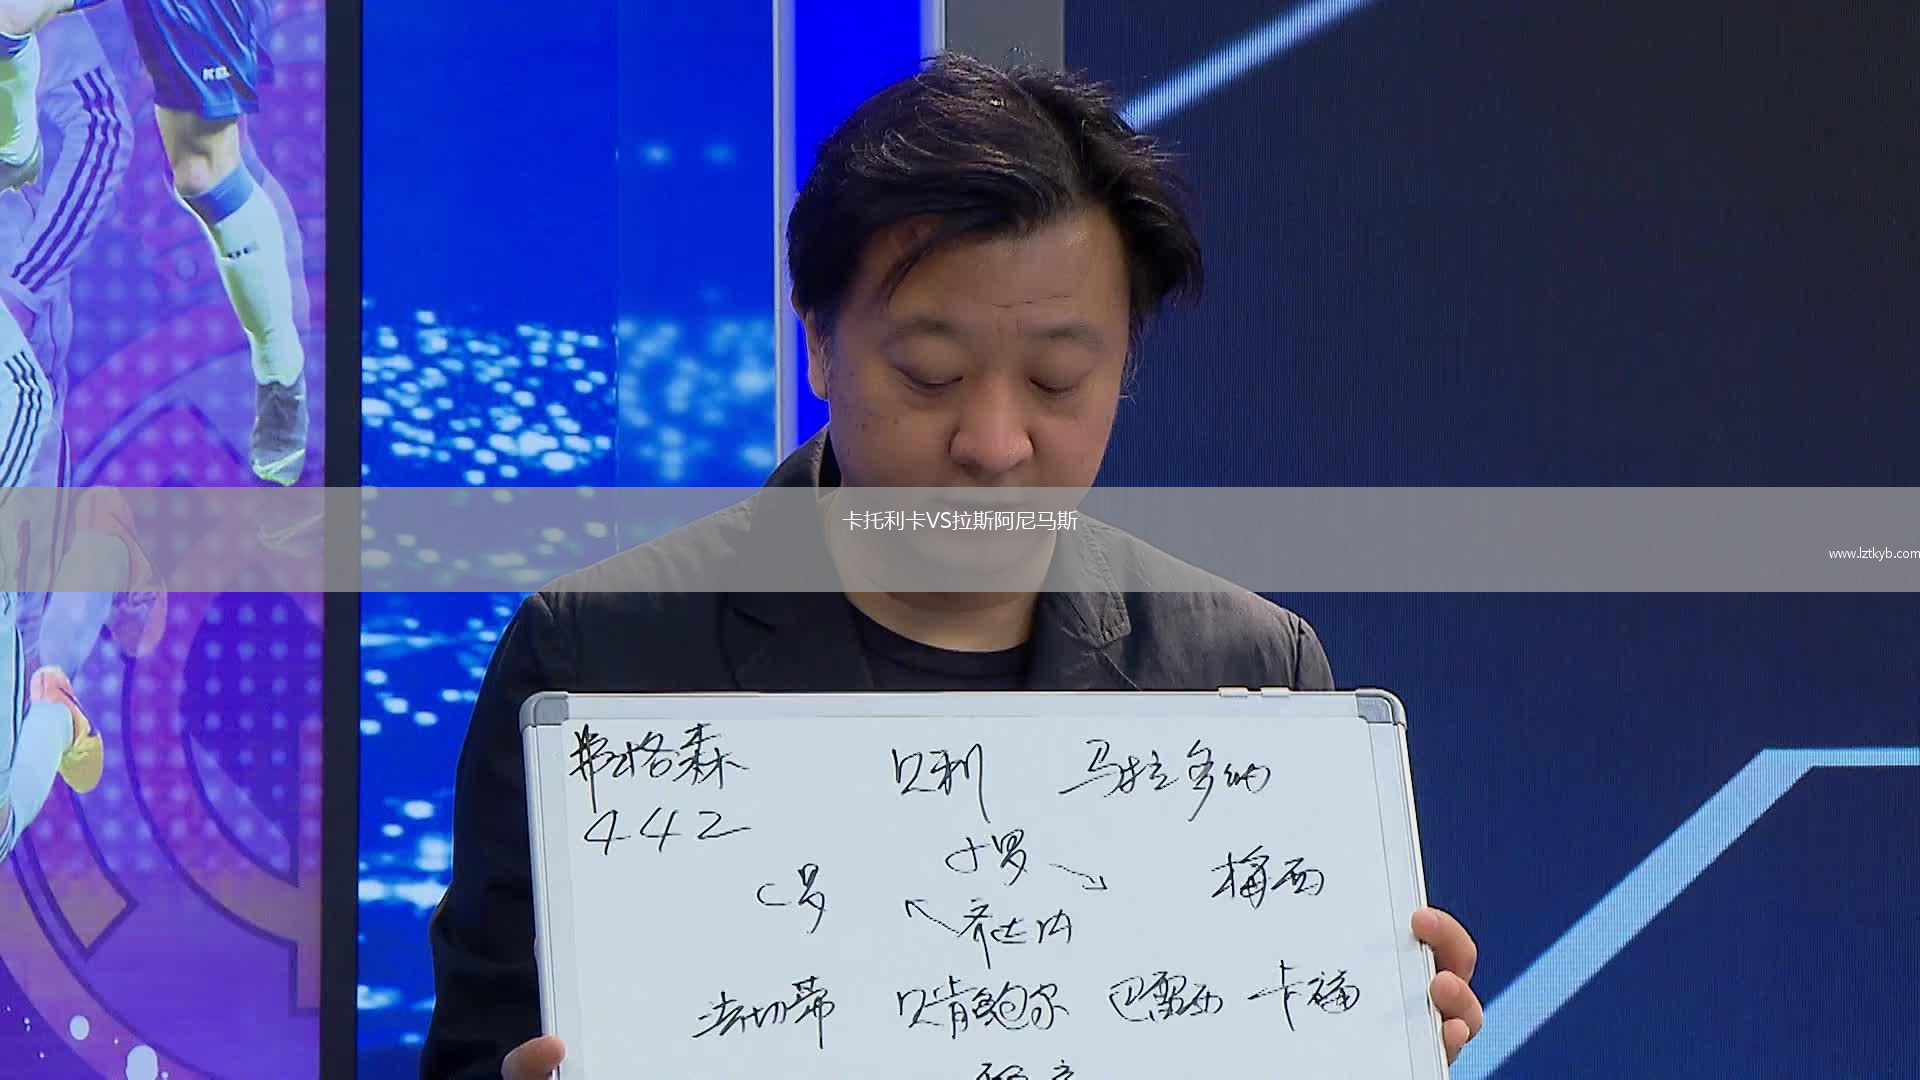 卡托利卡VS拉斯阿尼马斯
www.lztkyb.com
弗格森 贝利 马拉多纳
442
小罗
C罗 梅西
齐达内
法切蒂 贝肯鲍尔 巴雷西 卡福